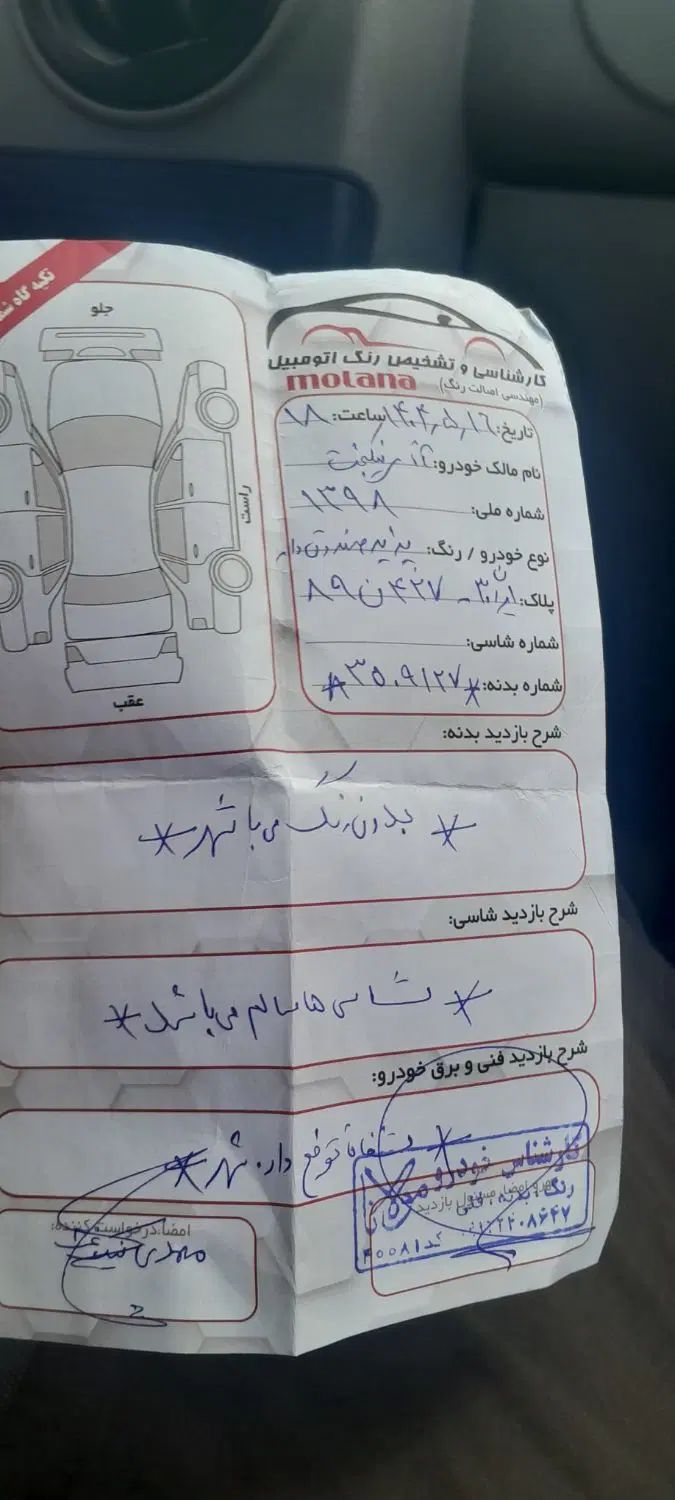 تکیه گاه
جلو
راست
عقب
کارشناسی و تشخیص رنگ اتومبیل
molana
(مهندسی اصالت رنگ)
تاریخ: ۱۴۰۴٫۵٫۱۶ ساعت: ۱۸
نام مالک خودرو:
شماره ملی: ۱۳۹۸
نوع خودرو / رنگ: پراید صندوق دار
پلاک: ایران ۳۰ - ۴۲۷ ن ۸۹
شماره شاسی:
شماره بدنه: * ۳۵۰۹۱۲۷ *
شرح بازدید بدنه:
* بدون رنگ می باشد *
شرح بازدید شاسی:
* شاسی ها سالم می باشد *
شرح بازدید فنی و برق خودرو:
* توقع دارد *
کارشناس خودرو
رنگ، بدنه، فنی
کد ۴۰۰۸۱
مهر و امضا مسئول بازدید
امضا درخواست کننده:
مهدی